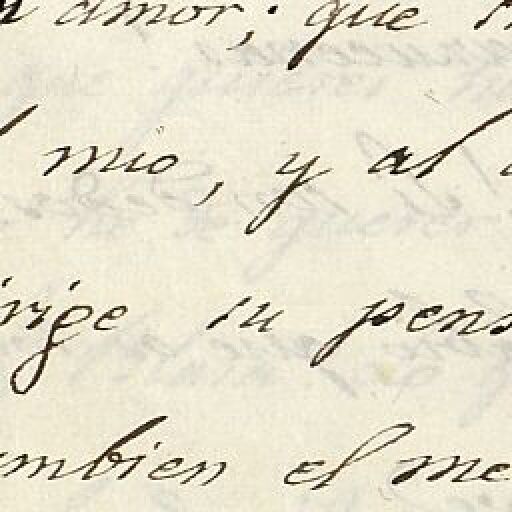 amor; que
mio, y al
irige su pens
mbien el me